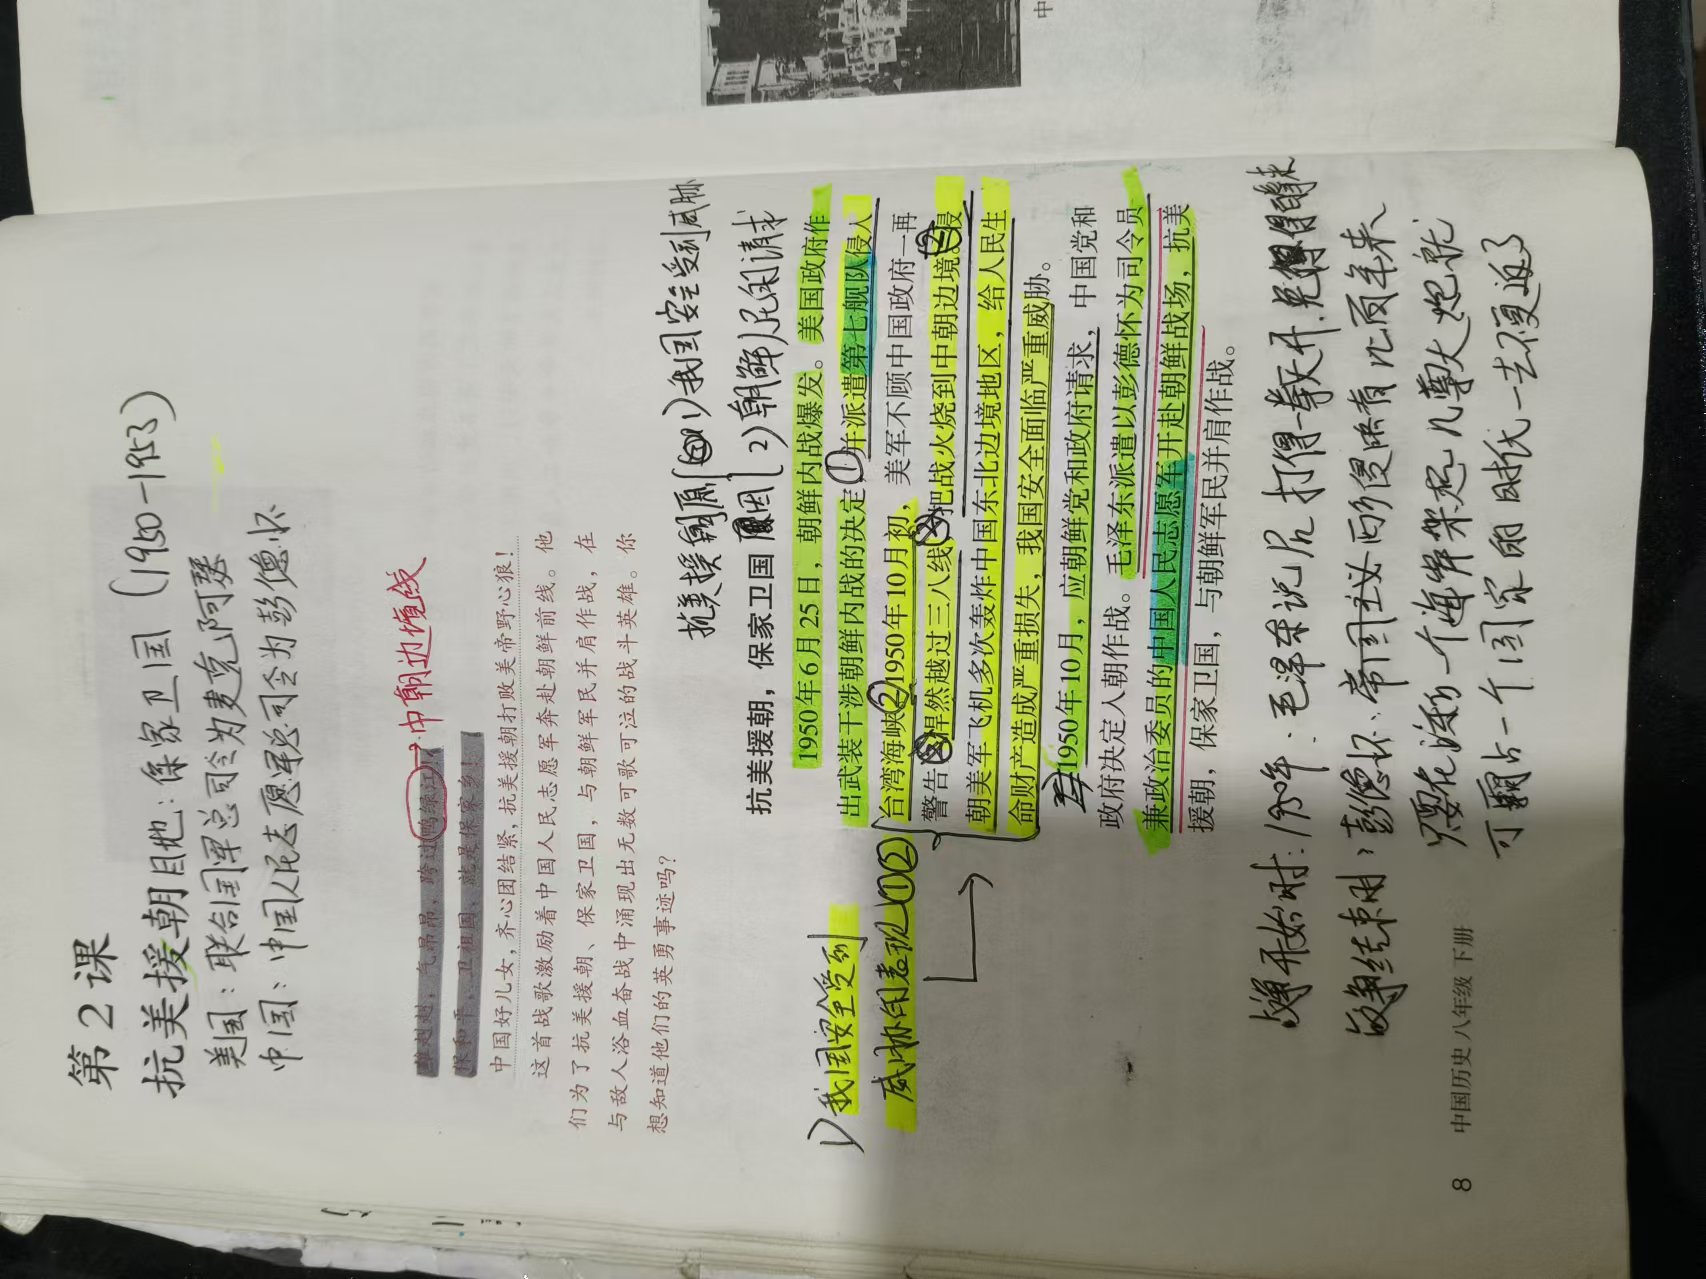 第 2 课
抗美援朝 目地：保家卫国 (1950-1953)
美国：联合国军总司令为麦克阿瑟
中国：中国人民志愿军总司令为彭德怀
雄赳赳，气昂昂，跨过鸭绿江！→中朝边境线
保和平，卫祖国，就是保家乡！
中国好儿女，齐心团结紧，抗美援朝打败美帝野心狼！
这首战歌激励着中国人民志愿军奔赴朝鲜前线。他
们为了抗美援朝、保家卫国，与朝鲜军民并肩作战，在
与敌人浴血奋战中涌现出无数可歌可泣的战斗英雄。你
想知道他们的英勇事迹吗？
抗美援朝原因
1)我国安全受到威胁
2)朝鲜人民的请求
抗美援朝，保家卫国
1950年6月25日，朝鲜内战爆发。美国政府作
出武装干涉朝鲜内战的决定，①并派遣第七舰队侵入
台湾海峡②1950年10月初，美军不顾中国政府一再
警告悍然越过三八线把战火烧到中朝边境。侵
朝美军飞机多次轰炸中国东北边境地区，给人民生
命财产造成严重损失，我国安全面临严重威胁。
1)我国安全受到
威胁的表现①②
1950年10月，应朝鲜党和政府请求，中国党和
政府决定入朝作战。毛泽东派遣以彭德怀为司令员
兼政治委员的中国人民志愿军开赴朝鲜战场，抗美
援朝，保家卫国，与朝鲜军民并肩作战。
战争开始时：1950年：毛泽东说：后 打得一拳开，免得
战争结束时，彭德怀：帝国主义 西方侵略者几百年来
只要在 一个海岸架起几尊大炮就
可霸占一个国家的时代一去不复返了
中国历史 八年级 下册
8
中